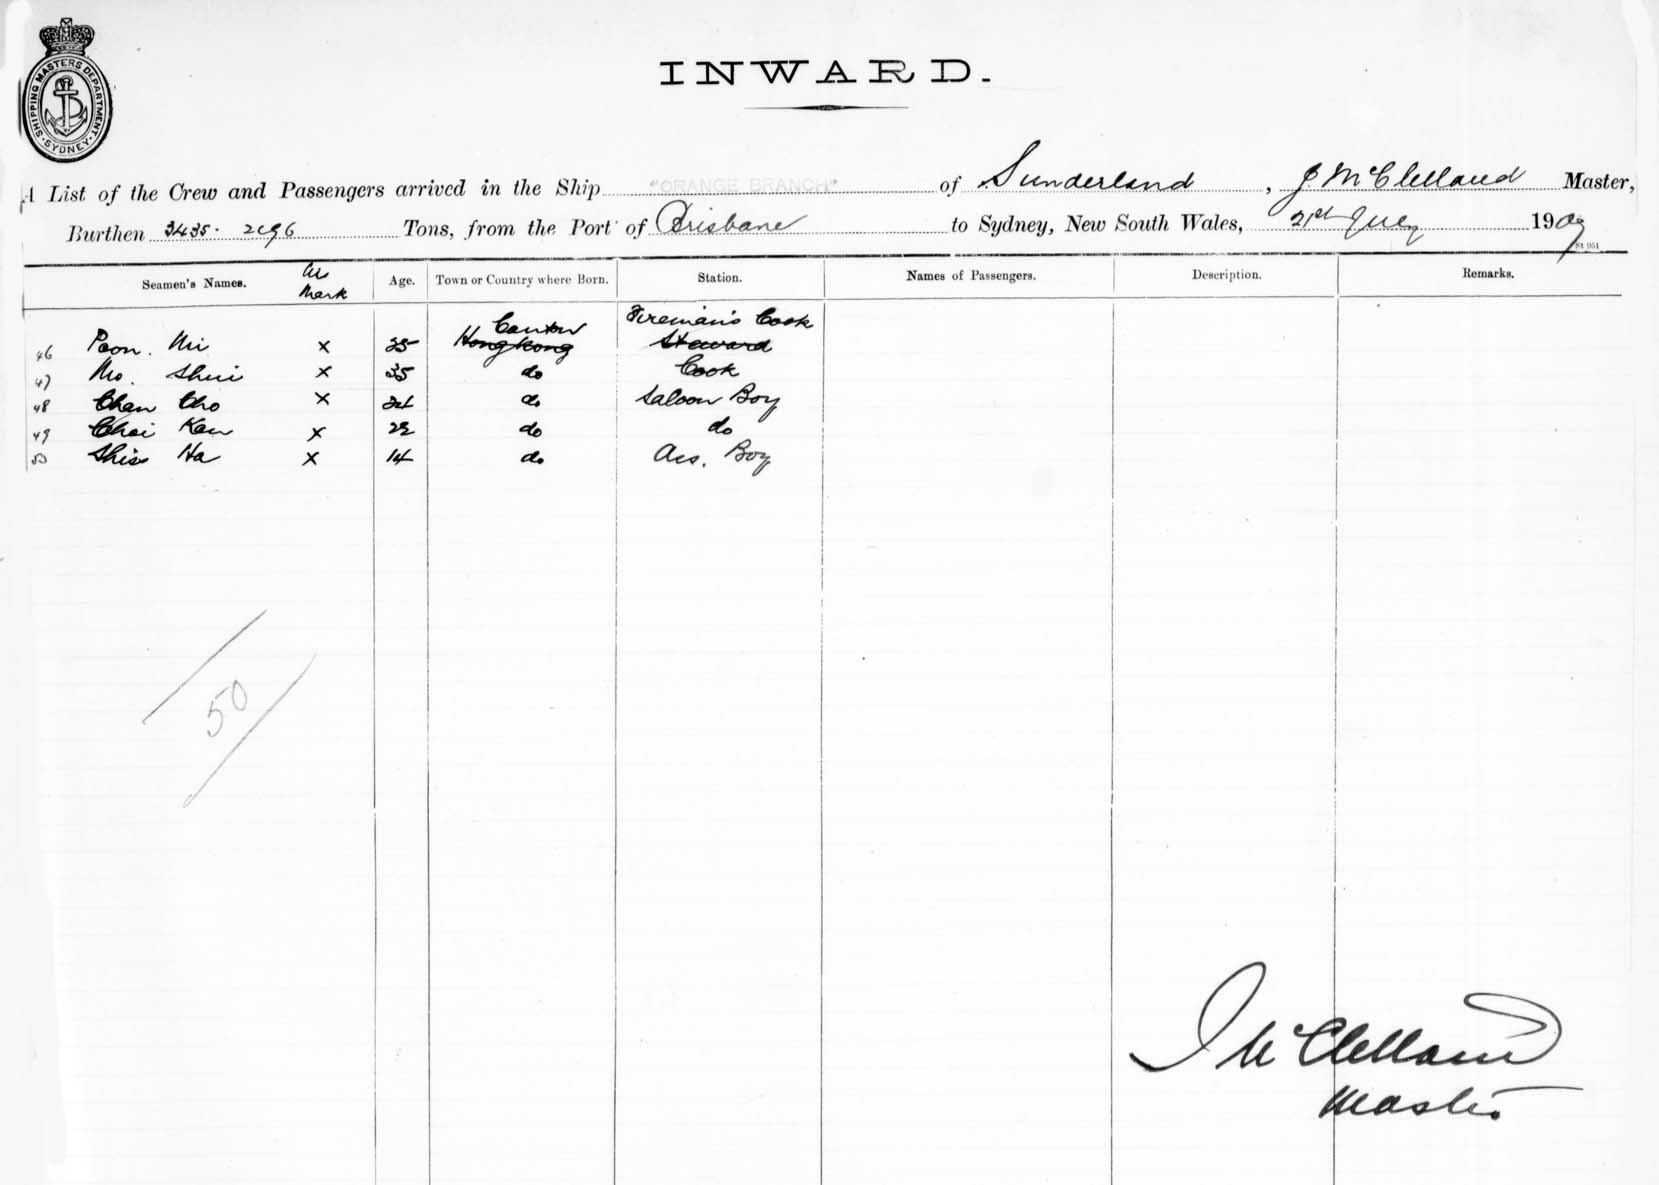 INWARD.
SHIPPING MASTERS DEPARTMENT
SYDNEY
A List of the Crew and Passengers arrived in the Ship "ORANGE BRANCH" of Sunderland, J. McClelland Master,
Burthen 3435. 2296 Tons, from the Port of Brisbane to Sydney, New South Wales, 21st July 1909
St 051
Seamen's Names. All Mark Age. Town or Country where Born. Station. Names of Passengers. Description. Remarks.
Canton Fireman's Cook
46 Poon. Mi x 25 Hongkong Steward
47 Mo. Shui x 35 do Cook
48 Chan Cho x 24 do Saloon Boy
49 Choi Kan x 22 do do
50 Ha x 14 do Boy
50
J McClelland
Master